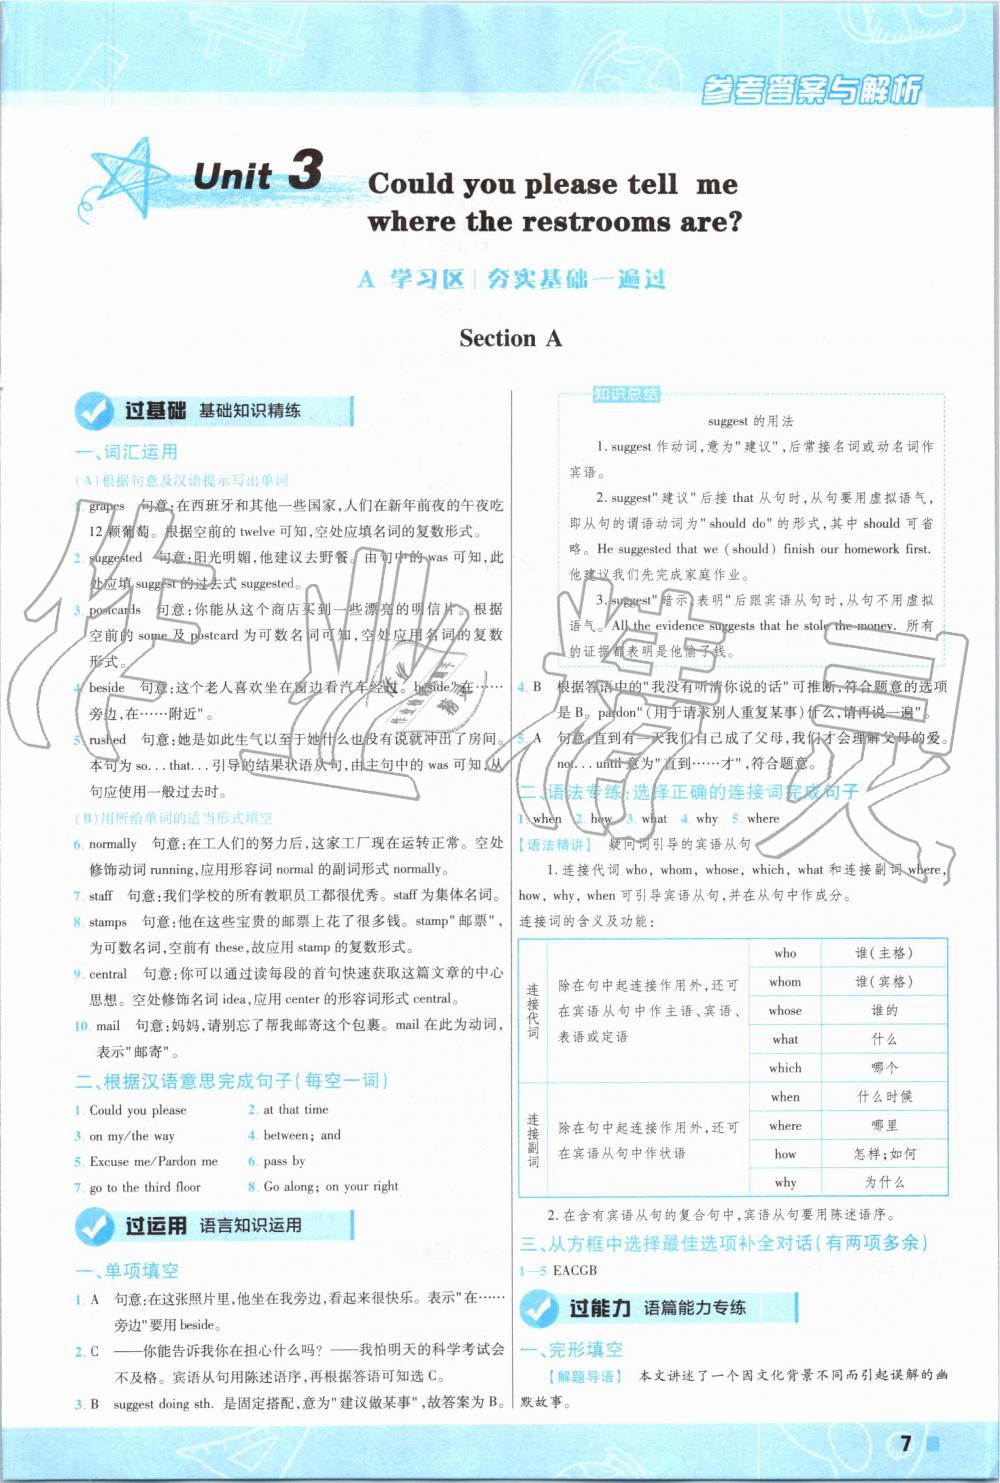 参考答案与解析
Unit 3
Could you please tell me
where the restrooms are?
A 学习区 | 夯实基础一遍过
Section A
过基础 基础知识精练
一、词汇运用
(A)根据句意及汉语提示写出单词
1. grapes 句意:在西班牙和其他一些国家,人们在新年前夜的午夜吃
12 颗葡萄。根据空前的 twelve 可知,空处应填名词的复数形式。
2. suggested 句意:阳光明媚,他建议去野餐。由句中的 was 可知,此
处应填 suggest 的过去式 suggested。
3. postcards 句意:你能从这个商店买到一些漂亮的明信片。根据
空前的 some 及 postcard 为可数名词可知,空处应用名词的复数
形式。
4. beside 句意:这个老人喜欢坐在窗边看汽车经过。beside"在……
旁边,在……附近"。
5. rushed 句意:她是如此生气以至于她什么也没有说就冲出了房间。
本句为 so...that...引导的结果状语从句,由主句中的 was 可知,从
句应使用一般过去时。
(B)用所给单词的适当形式填空
6. normally 句意:在工人们的努力后,这家工厂现在运转正常。空处
修饰动词 running,应用形容词 normal 的副词形式 normally。
7. staff 句意:我们学校的所有教职员工都很优秀。staff 为集体名词。
8. stamps 句意:他在这些宝贵的邮票上花了很多钱。stamp"邮票",
为可数名词,空前有 these,故应用 stamp 的复数形式。
9. central 句意:你可以通过读每段的首句快速获取这篇文章的中心
思想。空处修饰名词 idea,应用 center 的形容词形式 central。
10. mail 句意:妈妈,请别忘了帮我邮寄这个包裹。mail 在此为动词,
表示"邮寄"。
二、根据汉语意思完成句子(每空一词)
1. Could you please 2. at that time
3. on my/the way 4. between; and
5. Excuse me/Pardon me 6. pass by
7. go to the third floor 8. Go along; on your right
过运用 语言知识运用
一、单项填空
1. A 句意:在这张照片里,他坐在我旁边,看起来很快乐。表示"在……
旁边"要用 beside。
2. C ——你能告诉我你在担心什么吗? ——我怕明天的科学考试会
不及格。宾语从句用陈述语序,再根据答语可知选 C。
3. B suggest doing sth. 是固定搭配,意为"建议做某事",故答案为 B。
知识总结
suggest 的用法
1. suggest 作动词,意为"建议",后常接名词或动名词作
宾语。
2. suggest"建议"后接 that 从句时,从句要用虚拟语气,
即从句的谓语动词为"should do"的形式,其中 should 可省
略。He suggested that we (should) finish our homework first.
他建议我们先完成家庭作业。
3. suggest"暗示,表明"后跟宾语从句时,从句不用虚拟
语气。All the evidence suggests that he stole the money. 所有
的证据都表明是他偷了钱。
4. B 根据答语中的"我没有听清你说的话"可推断,符合题意的选项
是 B。pardon"(用于请求别人重复某事)什么,请再说一遍"。
5. A 句意:直到有一天我们自己成了父母,我们才会理解父母的爱。
not...until 意为"直到……才",符合题意。
二、语法专练:选择正确的连接词完成句子
1. when 2. how 3. what 4. why 5. where
【语法精讲】 疑问词引导的宾语从句
1. 连接代词 who, whom, whose, which, what 和连接副词 where,
how, why, when 可引导宾语从句,并在从句中作成分。
连接词的含义及功能:
连接代词 除在句中起连接作用外,还可
在宾语从句中作主语、宾语、
表语或定语
who 谁(主格)
whom 谁(宾格)
whose 谁的
what 什么
which 哪个
连接副词 除在句中起连接作用外,还可
在宾语从句中作状语
when 什么时候
where 哪里
how 怎样;如何
why 为什么
2. 在含有宾语从句的复合句中,宾语从句要用陈述语序。
三、从方框中选择最佳选项补全对话(有两项多余)
1—5 EACGB
过能力 语篇能力专练
一、完形填空
【解题导语】 本文讲述了一个因文化背景不同而引起误解的幽
默故事。
7
作业精灵